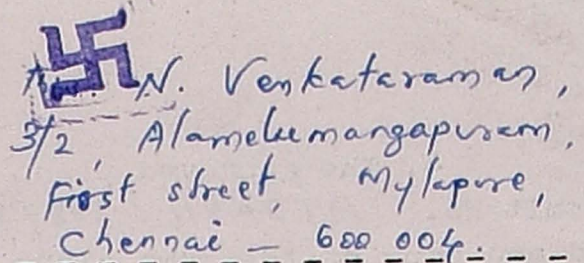 N. Venkataraman,
3/2, Alamelumangapuram,
First street, Mylapore,
Chennai – 600 004.